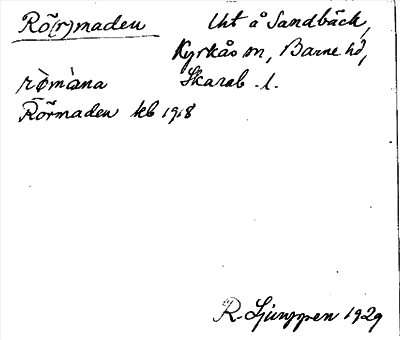 Rö(r)maden
Uht å Sandbäck,
Kyrkås sn, Barne hd,
Skarab. l.
rö̀màna
Rörmaden kb 1918
R. Ljunggren 1929